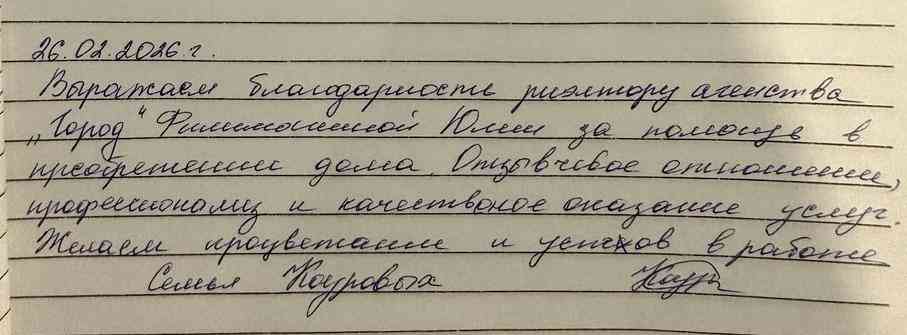 26.02.2026 г.
Выражаем благодарность риэлтору агенства
„Город“ Юлии за помощь в
преобретении дома. Отзывчевое отношении,
профессионализ и качественое оказание услуг.
Желаем процветание и успехов в работе
Семья Кауровых